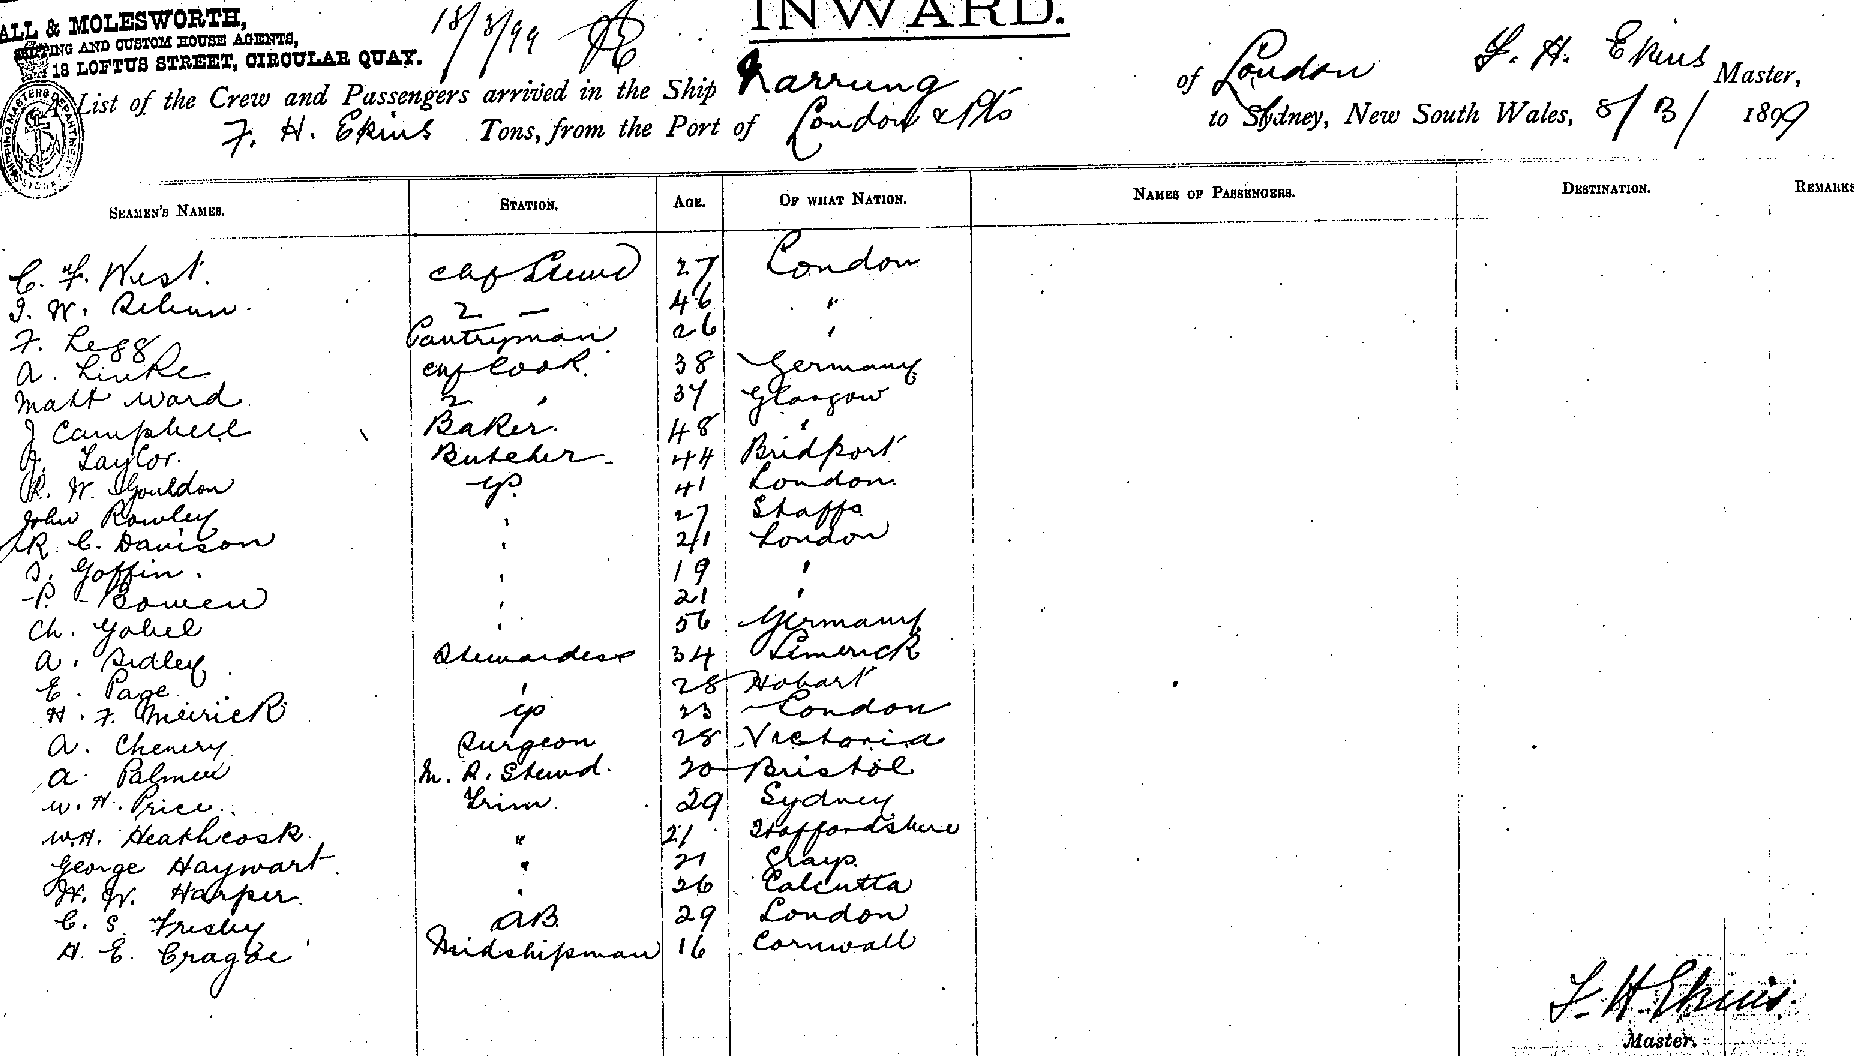 ALL & MOLESWORTH,
SHIPPING AND CUSTOM HOUSE AGENTS,
18 LOFTUS STREET, CIRCULAR QUAY.
13/3/99
INWARD.
A List of the Crew and Passengers arrived in the Ship Narrung of London F. H. Ekins Master,
F. H. Ekins Tons, from the Port of London & Pts to Sydney, New South Wales, 8/3/ 1899
SEAMEN'S NAMES. STATION. AGE. OF WHAT NATION. NAMES OF PASSENGERS. DESTINATION. REMARKS
C. F. West. Chf Stewd 27 London
W. 2 — 46 "
F. Legg Pantryman 26 "
A. Linke Chf Cook. 38 Germany
Matt Ward 2 " 37 Glasgow
J Campbell Baker. 48 "
Taylor. Butcher. 44 Bridport
R. W. Gouldon GS. 41 London.
John Rowley " 27 Staffs
R. C. Davison " 21 London
Goffin. " 19 "
P. Bowen " 21 "
Ch. Gobel " 56 Germany
A. Sidley Stewardess 34 Limerick
E. Page " 28 Hobart
H. F. Meirick GS 23 London
A. Chenery Surgeon 28 Victoria
A. Palmer M. R. Stewd. 20 Bristol
W. H. Price. Trim. 29 Sydney
W.H. Heathcosk. " 21 Staffordshire
George Haywart " 21 Grays.
H. W. Harper. " 26 Calcutta
C. S. Fresby AB. 29 London
H. E. Cragoe Midshipman 16 Cornwall
F. H. Ekins.
Master.